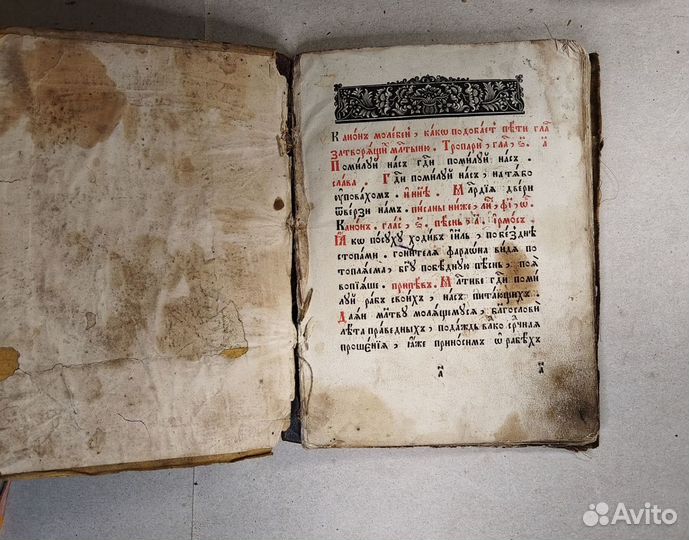 Канѡ́нъ моле́бенъ, ка́кѡ подоба́етъ пѣ́ти
затворѧ́щи
Тропари̑, гла́, ѕ҃.
Поми́лꙋй на́съ гдⷭ҇и поми́лꙋй на́съ.
сла́ва. Гдⷭ҇и поми́лꙋй на́съ, на тѧ́ бо
ᲂу҆пова́хомъ. и҆ нн҃ѣ. Млⷭ҇рдїѧ две́ри
ѿве́рзи на́мъ. пи́саны ни́же,
Кано́нъ, гла́съ, ѕ҃, пѣ́снь, а҃. і҆рмо́съ.
Ꙗ҆́кѡ посꙋ́хꙋ ходи́въ і҆и҃ль, по бе́зднѣ
стопа́ми. гони́телѧ фараѡ́на ви́дѧ по
топлѧ́ема, бг҃ꙋ побѣ́днꙋю пѣ́снь, поѧ̀
вопїѧ́ше. припѣ́въ. Млⷭ҇тиве гдⷭ҇и поми́
лꙋй ра́бъ свои́хъ, на́съ пита́ющихъ.
Даѧ́и мл҃твꙋ молѧ́щемꙋсѧ, благослови́
лѣ́та пра́ведныхъ, пода́ждь влⷣко срⷣчнаѧ
проше́нїѧ, ꙗ҆̀же прино́симъ ѡ҆ рабѣ́хъ
а҃ а҃
Avito